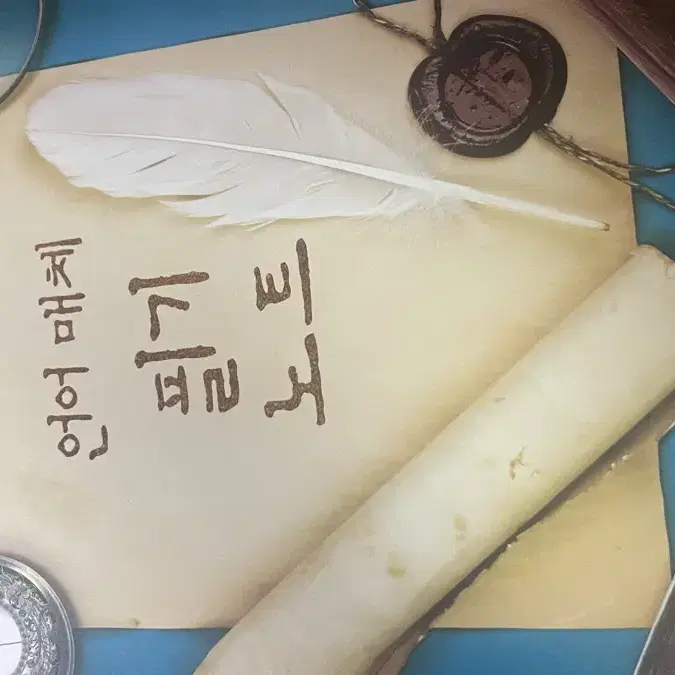 언어 매체
필기
노트